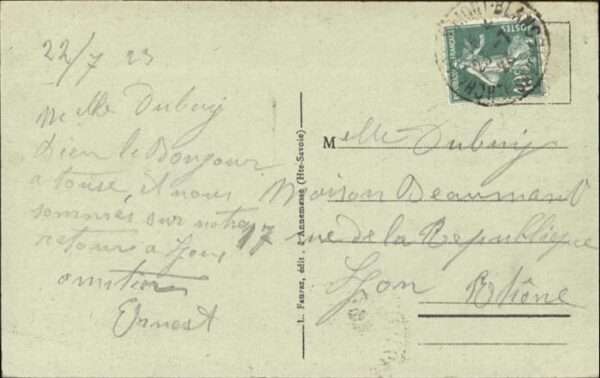 22/7 23
Melle Dubuis
Bien le Bonjour
a touse, et nous
sommes sur notre
retour a Lyon
Ernest
L. Faurez, édit. à Annemasse (Hte-Savoie)
Melle Dubuis
Maison Beaumant
17 rue de la Republique
Lyon
Rhône
MONT-BLANC
POSTES